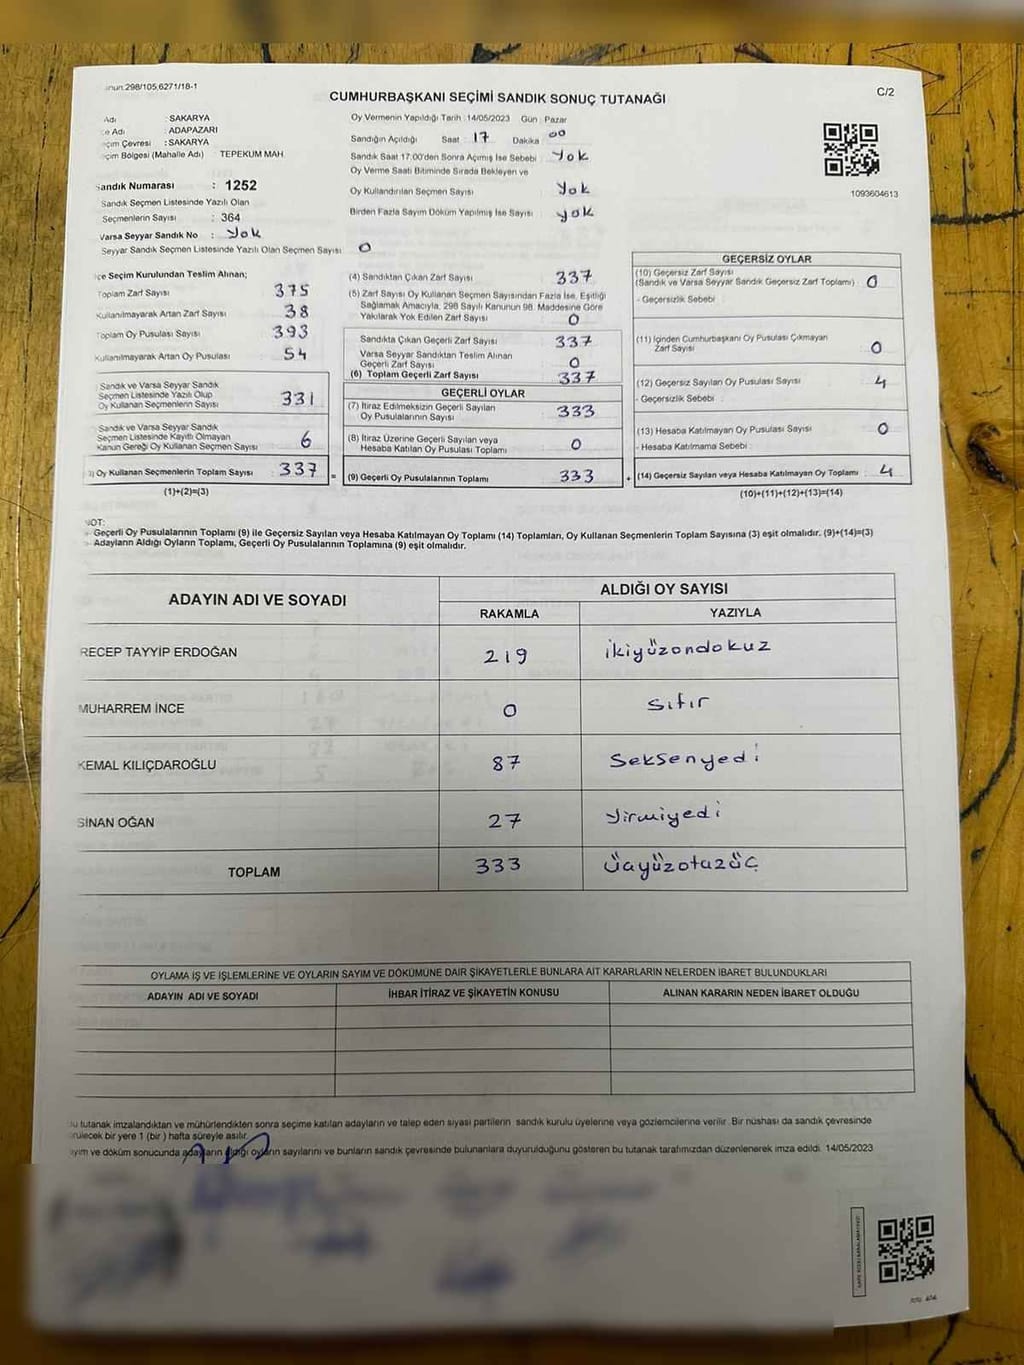 nun:298/105,6271/18-1
C/2
CUMHURBAŞKANI SEÇİMİ SANDIK SONUÇ TUTANAĞI
Adı : SAKARYA
çe Adı : ADAPAZARI
çim Çevresi : SAKARYA
çim Bölgesi (Mahalle Adı) TEPEKUM MAH.
Sandık Numarası : 1252
Sandık Seçmen Listesinde Yazılı Olan
Seçmenlerin Sayısı : 364
Varsa Seyyar Sandık No : Yok
Seyyar Sandık Seçmen Listesinde Yazılı Olan Seçmen Sayısı 0
Oy Vermenin Yapıldığı Tarih :14/05/2023 Gün : Pazar
Sandığın Açıldığı Saat : 17 Dakika : 00
Sandık Saat 17.00'den Sonra Açımış İse Sebebi : Yok
Oy Verme Saati Bitiminde Sırada Bekleyen ve
Oy Kullandırılan Seçmen Sayısı : Yok
Birden Fazla Sayım Döküm Yapılmış İse Sayısı : Yok
1093604613
çe Seçim Kurulundan Teslim Alınan;
Toplam Zarf Sayısı : 375
Kullanılmayarak Artan Zarf Sayısı : 38
Toplam Oy Pusulası Sayısı : 393
Kullanılmayarak Artan Oy Pusulası : 54
Sandık ve Varsa Seyyar Sandık
Seçmen Listesinde Yazılı Olup
Oy Kullanan Seçmenlerin Sayısı : 331
Sandık ve Varsa Seyyar Sandık
Seçmen Listesinde Kayıtlı Olmayan
Kanun Gereği Oy Kullanan Seçmen Sayısı : 6
) Oy Kullanan Seçmenlerin Toplam Sayısı : 337
(1)+(2)=(3)
(4) Sandıktan Çıkan Zarf Sayısı : 337
(5) Zarf Sayısı Oy Kullanan Seçmen Sayısından Fazla İse, Eşitliği
Sağlamak Amacıyla, 298 Sayılı Kanunun 98. Maddesine Göre
Yakılarak Yok Edilen Zarf Sayısı : 0
Sandıkta Çıkan Geçerli Zarf Sayısı : 337
Varsa Seyyar Sandıktan Teslim Alınan
Geçerli Zarf Sayısı : 0
(6) Toplam Geçerli Zarf Sayısı : 337
GEÇERLİ OYLAR
(7) İtiraz Edilmeksizin Geçerli Sayılan
Oy Pusulalarının Sayısı : 333
(8) İtiraz Üzerine Geçerli Sayılan veya
Hesaba Katılan Oy Pusulası Toplamı : 0
= (9) Geçerli Oy Pusulalarının Toplamı : 333 +
GEÇERSİZ OYLAR
(10) Geçersiz Zarf Sayısı
(Sandık ve Varsa Seyyar Sandık Geçersiz Zarf Toplamı) : 0
- Geçersizlik Sebebi :
(11) İçinden Cumhurbaşkanı Oy Pusulası Çıkmayan
Zarf Sayısı : 0
(12) Geçersiz Sayılan Oy Pusulası Sayısı : 4
- Geçersizlik Sebebi :
(13) Hesaba Katılmayan Oy Pusulası Sayısı : 0
- Hesaba Katılmama Sebebi :
(14) Geçersiz Sayılan veya Hesaba Katılmayan Oy Toplamı : 4
(10)+(11)+(12)+(13)=(14)
NOT:
- Geçerli Oy Pusulalarının Toplamı (9) ile Geçersiz Sayılan veya Hesaba Katılmayan Oy Toplamı (14) Toplamları, Oy Kullanan Seçmenlerin Toplam Sayısına (3) eşit olmalıdır. (9)+(14)=(3)
- Adayların Aldığı Oyların Toplamı, Geçerli Oy Pusulalarının Toplamına (9) eşit olmalıdır.
ADAYIN ADI VE SOYADI
ALDIĞI OY SAYISI
RAKAMLA YAZIYLA
RECEP TAYYİP ERDOĞAN 219 ikiyüzondokuz
MUHARREM İNCE 0 Sıfır
KEMAL KILIÇDAROĞLU 87 Seksenyedi
SİNAN OĞAN 27 Yirmiyedi
TOPLAM 333 üçyüzotuzüç
OYLAMA İŞ VE İŞLEMLERİNE VE OYLARIN SAYIM VE DÖKÜMÜNE DAİR ŞİKAYETLERLE BUNLARA AİT KARARLARIN NELERDEN İBARET BULUNDUKLARI
ADAYIN ADI VE SOYADI İHBAR İTİRAZ VE ŞİKAYETİN KONUSU ALINAN KARARIN NEDEN İBARET OLDUĞU
u tutanak imzalandıktan ve mühürlendikten sonra seçime katılan adayların ve talep eden siyasi partilerin sandık kurulu üyelerine veya gözlemcilerine verilir. Bir nüshası da sandık çevresinde
rülecek bir yere 1 (bir) hafta süreyle asılır.
ayım ve döküm sonucunda adayların aldığı oyların sayılarını ve bunların sandık çevresinde bulunanlara duyurulduğunu gösteren bu tutanak tarafımızdan düzenlenerek imza edildi. 14/05/2023